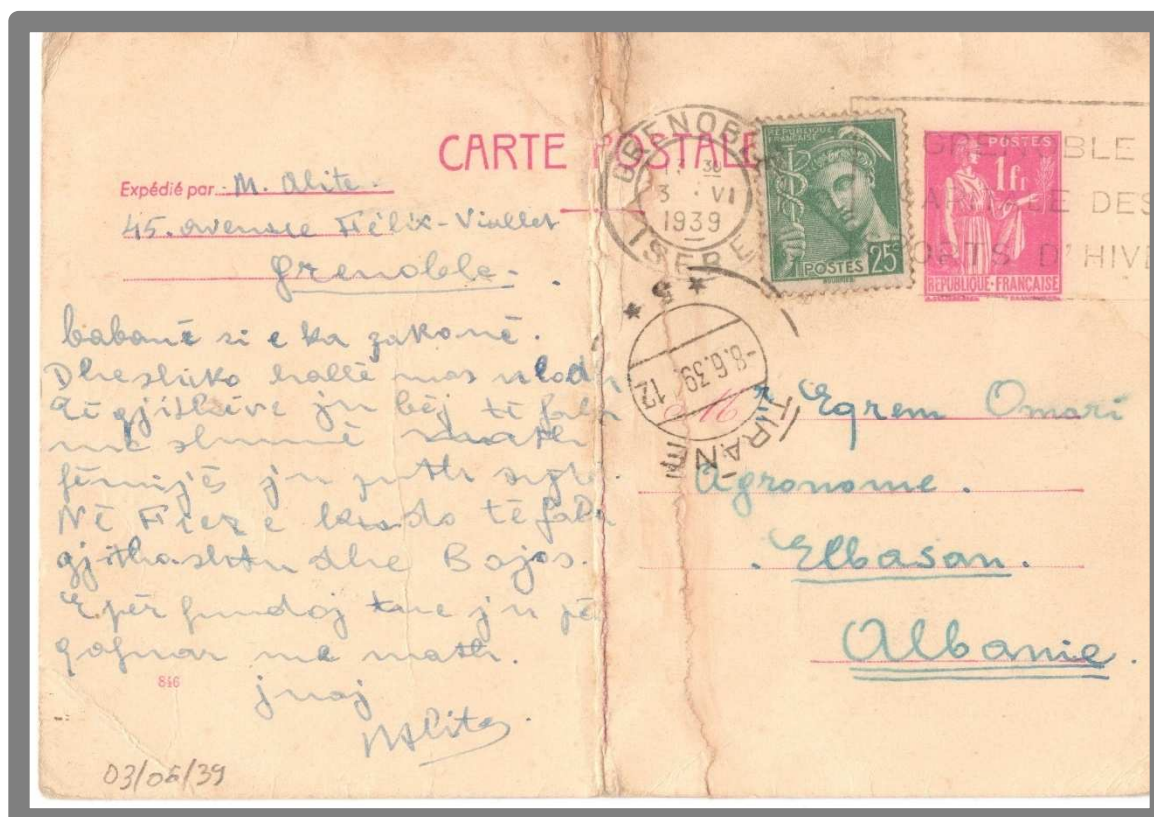 CARTE POSTALE
Expédié par M. Alite.
45. avenue Félix-Viallet
Grenoble.
babanë si e ka zakonë.
Dhe shiko hallë mos
gjithëve ju bëj të fala
me shumë
fëmijës ju puth sytë.
Në Fier e të fala
gjithashtu dhe Bajos.
E për fundoj tue ju
me mall.
juaj
MAlite
846
03/06/39
GRENOBLE
30
3 VI
1939
ISERE
RÉPUBLIQUE FRANÇAISE
POSTES 25
POSTES
1fr
RÉPUBLIQUE FRANÇAISE
GRENOBLE
DES
SPORTS D'HIVE
-8.6.39. 12
TIRANE
M
Eqrem Omari
Agronome.
Elbasan.
Albanie.